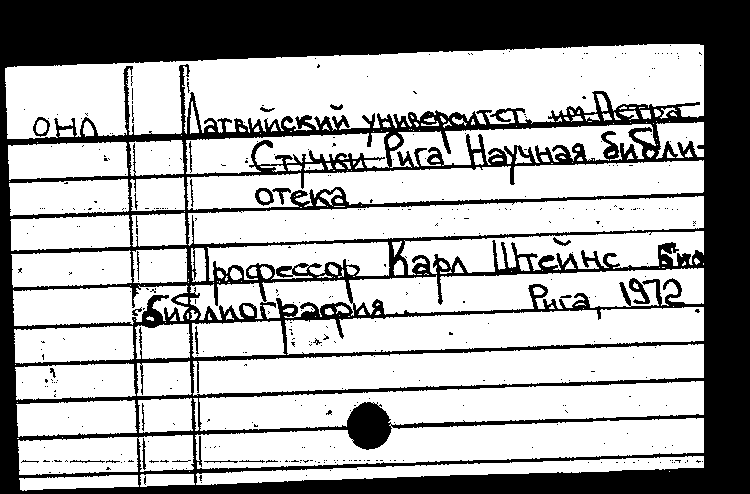 ОНЛ Латвийский университет. им Петра
Стучки Рига Научная библи-
отека.
Профессор Карл Штейнс Био
библиография. Рига, 1972